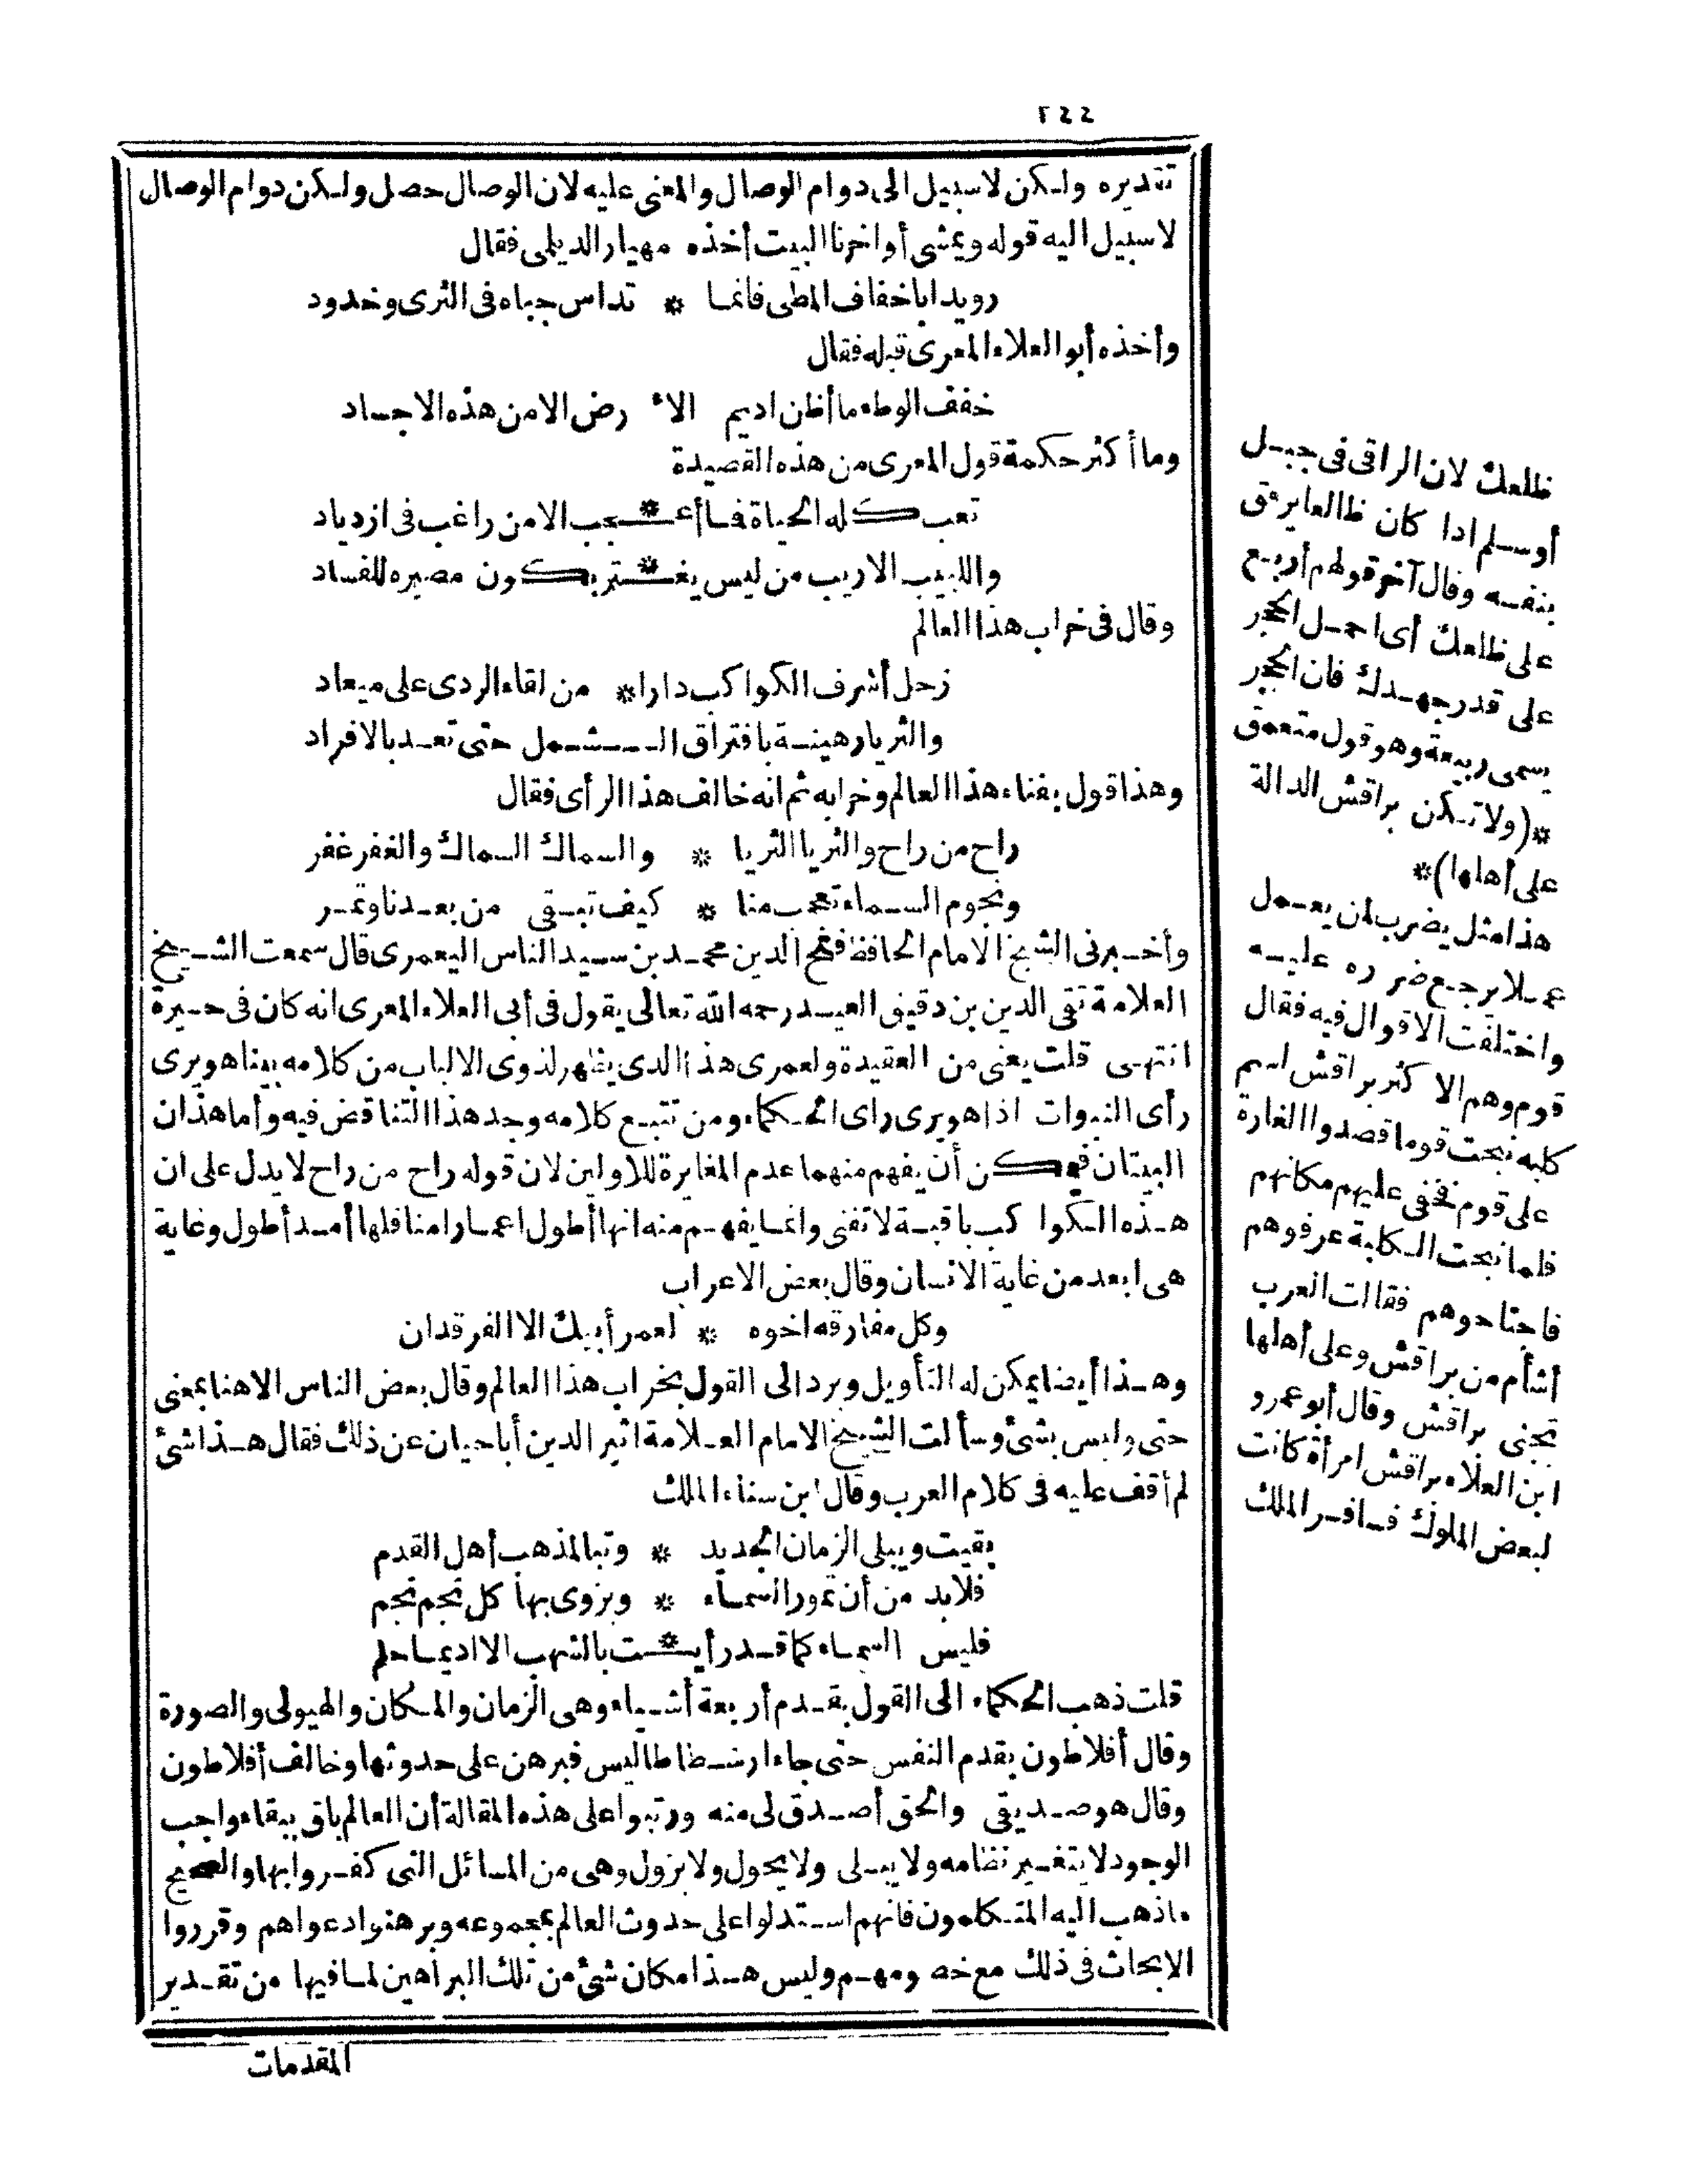 ٢٤٤
تقديره ولكن لاسبيل الى دوام الوصال والمعنى عليه لان الوصال حصل ولكن دوام الوصال
لاسبيل اليه قوله ويمشى أواخرنا البيت أخذه مهيار الديلمى فقال
رويدا باخفاف المطى فانما * تداس جباه فى الثرى وخدود
وأخذه أبو العلاء المعرى قبله فقال
خفف الوطء ما أظن اديم الأ رض الامن هذه الاجساد
وما أكثر حكمة قول المعرى من هذه القصيدة
تعب كله الحياة فما أعـ * ـجب الامن راغب فى ازدياد
واللبيب الاريب من ليس يغـ * ـتر بكون مصيره للفساد
وقال فى خراب هذا العالم
زحل أشرف الكواكب دارا * من لقاء الردى على ميعاد
والثريا رهينة بافتراق الـشمل حتى تعد بالافراد
وهذا قول بفناء هذا العالم وخرابه ثم انه خالف هذا الرأى فقال
راح من راح والثريا الثريا * والسماك السماك والغفر غفر
ونجوم السماء تعجب منا * كيف تبقى من بعدنا وتمر
وأخبرنى الشيخ الامام الحافظ فتح الدين محمد بن سيد الناس اليعمرى قال سمعت الشيخ
العلامة تقى الدين بن دقيق العيد رحمه الله تعالى يقول فى أبى العلاء المعرى انه كان فى حيرة
انتهى قلت يعنى من العقيدة ولعمرى هذا الذى يظهر لذوى الالباب من كلامه بيناهو يرى
رأى النبوات اذا هو يرى راى الحكماء ومن تتبع كلامه وجد هذا التناقض فيه وأما هذان
البيتان فيمكن أن يفهم منهما عدم المغايرة للاولين لان قوله راح من راح لا يدل على ان
هذه الكواكب باقية لاتفنى وانما يفهم منه انها أطول اعمارا منا فلها أمد أطول وغاية
هى ابعد من غاية الانسان وقال بعض الاعراب
وكل مفارقه اخوه * لعمر أبيك الا الفرقدان
وهذا أيضا يمكن له التأويل ويرد الى القول بخراب هذا العالم وقال بعض الناس الاهنا بمعنى
حتى وليس بشئ وسألت الشيخ الامام العلامة اثير الدين أباحيان عن ذلك فقال هذا شئ
لم أقف عليه فى كلام العرب وقال ابن سناء الملك
بقيت ويبلى الزمان الجديد * وتبا لمذهب أهل القدم
فلابد من أن تمور السماء * ويزوى بها كل نجم نجم
فليس السماء كما قد رأيـ * ـت بالشهب الا اديما حلم
قلت ذهب الحكماء الى القول بقدم أربعة أشياء وهى الزمان والمكان والهيولى والصورة
وقال أفلاطون بقدم النفس حتى جاء ارسطاطاليس فبرهن على حدوثها وخالف أفلاطون
وقال هو صديقى والحق أصدق لى منه ورتبوا على هذه المقالة أن العالم باق ببقاء واجب
الوجود لا يتغير نظامه ولا يبلى ولا يحول ولا يزول وهى من المسائل التى كفروا بها والصحيح
ماذهب اليه المتكلمون فانهم استدلوا على حدوث العالم بمجموعه وبرهنوا دعواهم وقرروا
الابحاث فى ذلك مع خصومهم وليس هذا مكان شئ من تلك البراهين لما فيها من تقدير
المقدمات
ظلعك لان الراقى فى جبل
أوسلم اذا كان ظالعا يرفق
بنفسه وقال آخر قولهم أربع
على ظلعك أى احمل الحجر
على قدر جهدك فان الحجر
يسمى ربيعة وهو قول متعمق
*(ولاتكن براقش الدالة
على أهلها)*
هذا مثل يضرب لمن يعمل
عملا يرجع ضرره عليه
واختلفت الاقوال فيه فقال
قوم وهم الاكثر براقش اسم
كلبه نبحت قوما قصدوا الغارة
على قوم فخفى عليهم مكانهم
فلما نبحت الكلبة عرفوهم
فاجتاحوهم فقالت العرب
أشأم من براقش وعلى أهلها
تجنى براقش وقال أبو عمرو
ابن العلاء براقش امرأة كانت
لبعض الملوك فسافر الملك